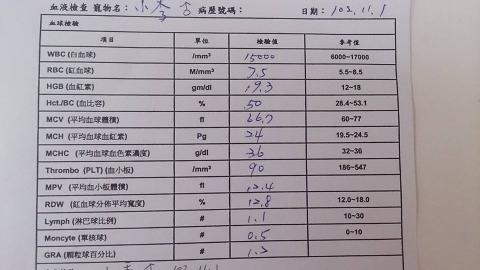 血液檢查 寵物名：小李杏 病歷號碼： 日期：102.11.1
血球檢驗
項目 單位 檢驗值 參考值
WBC (白血球) /mm³ 15000 6000~17000
RBC (紅血球) M/mm³ 7.5 5.5~8.5
HGB (血紅素) gm/dl 19.3 12~18
Hct./BC (血比容) % 50 28.4~53.1
MCV (平均血球體積) fl 66.7 60~77
MCH (平均血球血紅素) Pg 24 19.5~24.5
MCHC (平均血球血色素濃度) g/dl 36 32~36
Thrombo (PLT) (血小板) /mm³ 90 186~547
MPV (平均血小板體積) fl 12.4
RDW (紅血球分佈平均寬度) % 12.8 12.0~18.0
Lymph (淋巴球比例) # 1.1 10~30
Moncyte (單核球) # 0.5 0~10
GRA (顆粒球百分比) # 1.3